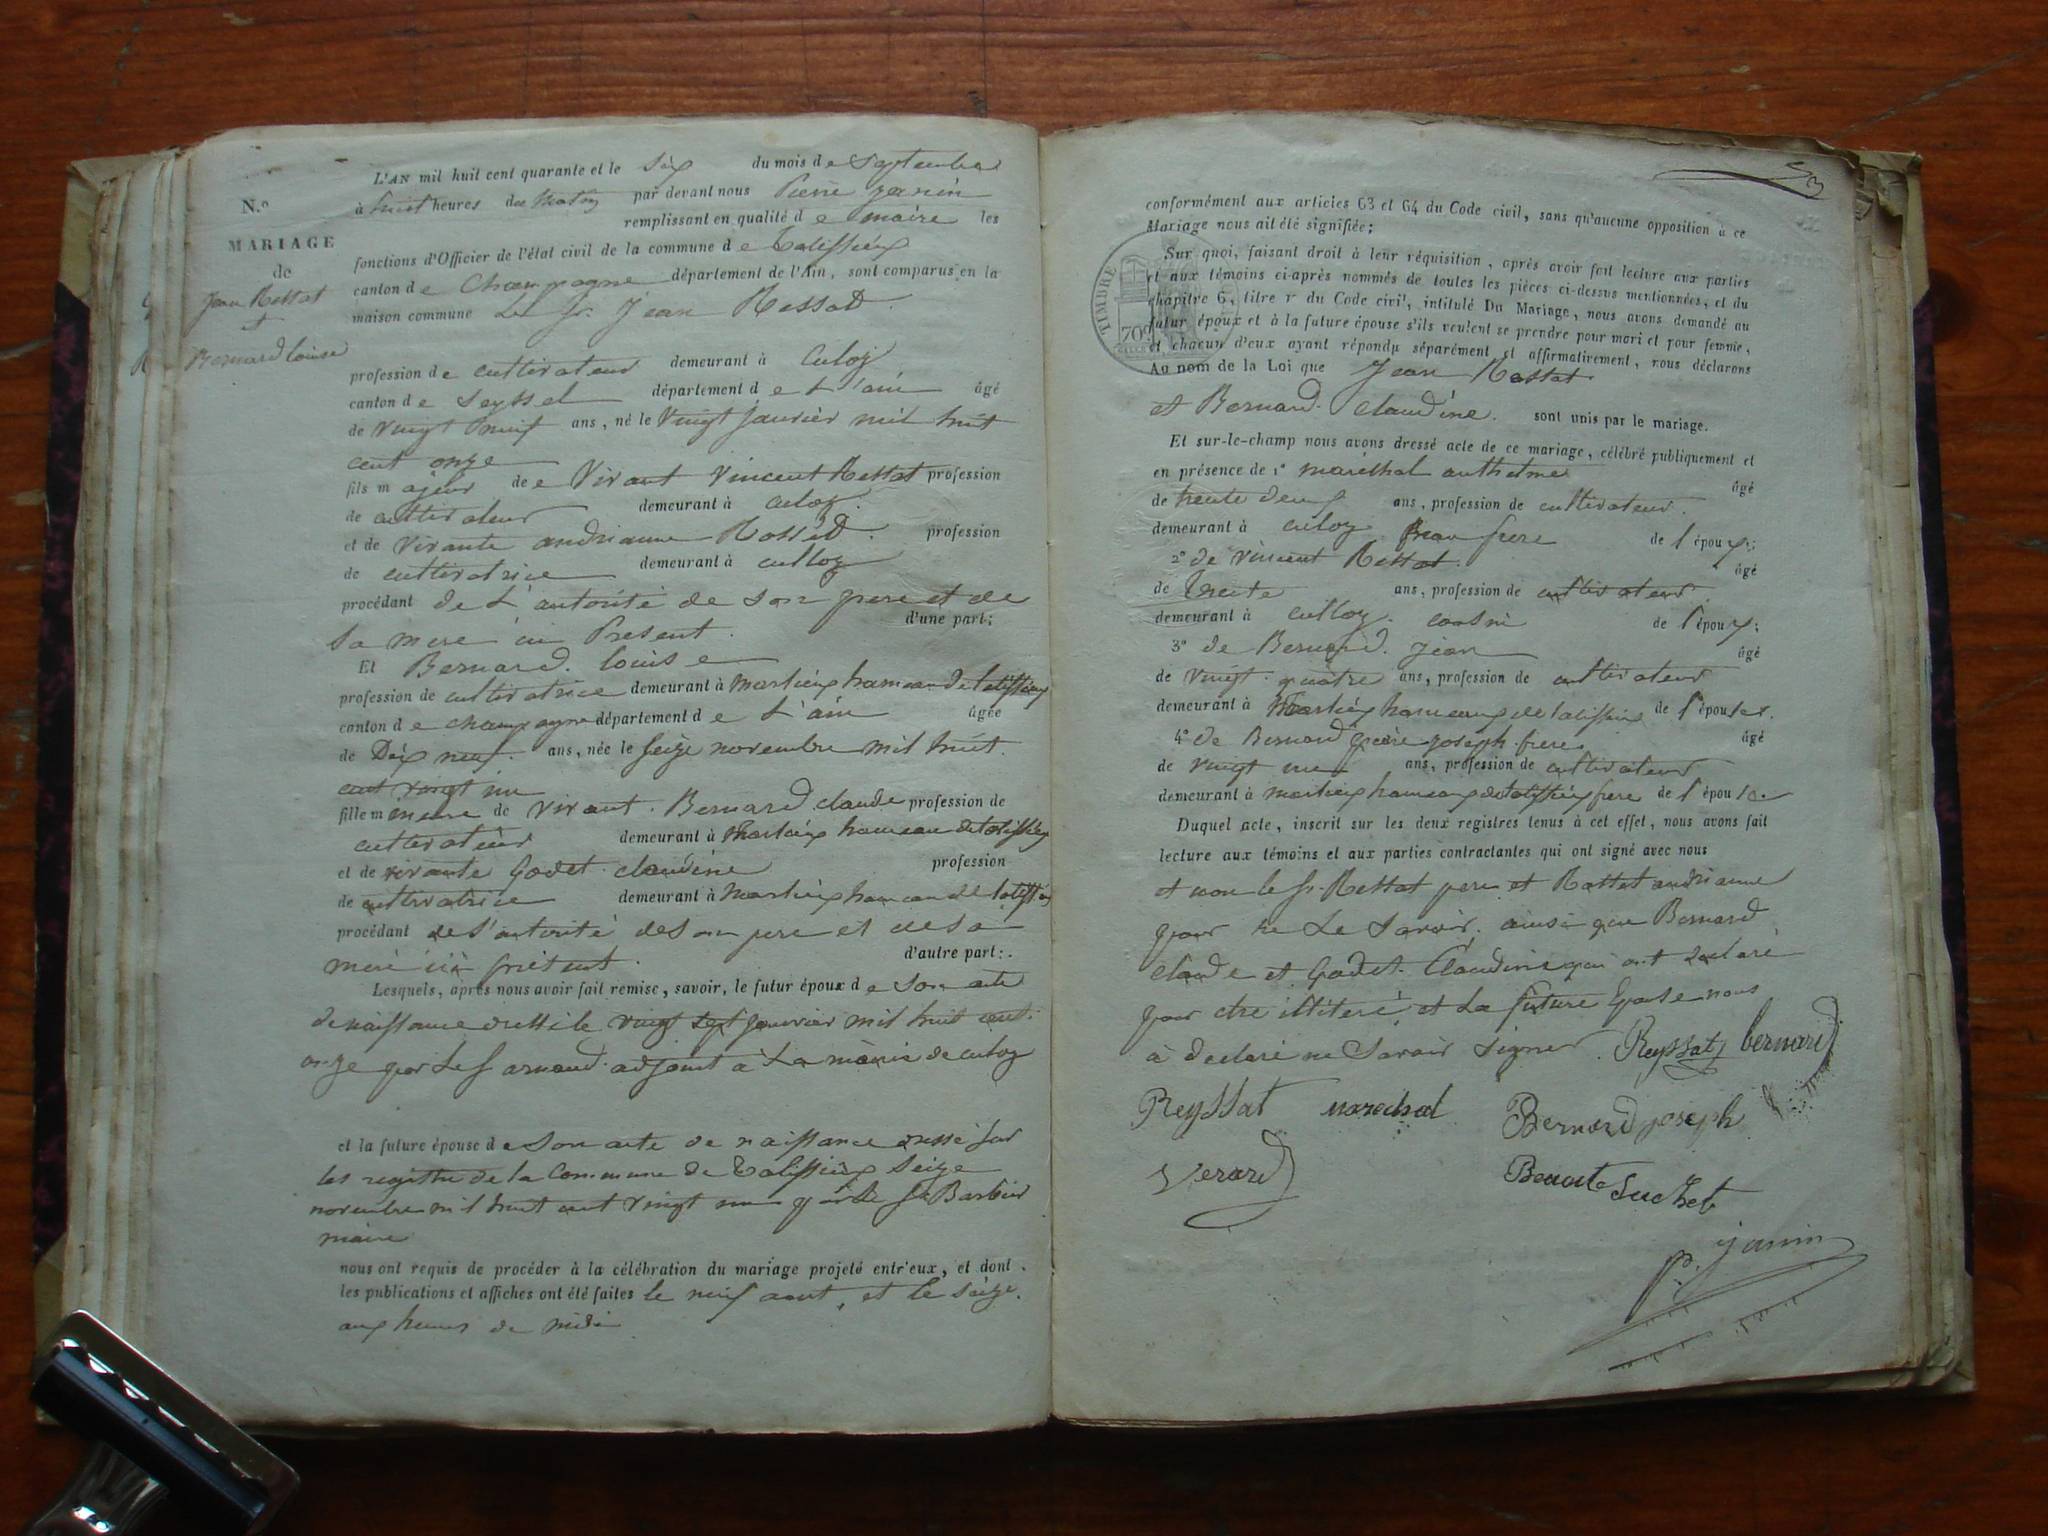 N.º
MARIAGE
de
Jean Rettat
et
Bernard louise
L'AN mil huit cent quarante et le six du mois de septembre
à huit heures du Matin par devant nous Pierre janin
remplissant en qualité de maire les
fonctions d'Officier de l'état civil de la commune de talissieux
canton de Champagne département de l'Ain, sont comparus en la
maison commune Le Sr. Jean Ressat.
profession de cultivateur demeurant à Culoz
canton de Seyssel département de L'ain âgé
de vingt neuf ans, né le vingt janvier mil huit
cent onze
fils majeur de Vivant Vincent Rettat profession
de cultivateur demeurant à culoz.
et de vivante andrianne Rosset. profession
de cultivatrice demeurant à culloz
procédant de L'autorité de son pere et de
d'une part;
sa mere ici Present.
Et Bernard. louise
profession de cultivatrice demeurant à Marlieux hameau de talissieux
canton de champagne département de L'ain âgée
de Dix neuf. ans, née le seize novembre mil huit.
cent vingt un
fille mineure de vivant. Bernard claude profession de
cultivateur demeurant à Marlieux hameau de talissieux
et de vivante Godet claudine profession
de cultivatrice demeurant à Marlieux hameau de talissieux
procédant de l'autorité de son pere et de sa
d'autre part:.
mere ici présent.
Lesquels, après nous avoir fait remise, savoir, le futur époux de son acte
de naissance dressé le vingt sept janvier mil huit cent.
onze par le S arnaud. adjoint à La mairie de culoz
et la future épouse de son acte de naissance dressé sur
les registre de la Commune de talissieux seize
novembre mil huit cent vingt un par le Sr Barbier
maire
nous ont requis de procéder à la célébration du mariage projeté entr'eux, et dont
les publications et affiches ont été faites le neuf aout, et le seize.
aux heures de midi
3
conformément aux articles 63 et 64 du Code civil, sans qu'aucune opposition à ce
Mariage nous ait été signifiée;
TIMBRE
70c
Sur quoi, faisant droit à leur réquisition, après avoir fait lecture aux parties
et aux témoins ci-après nommés de toutes les pièces ci-dessus mentionnées, et du
chapitre 6, titre v du Code civil, intitulé Du Mariage, nous avons demandé au
futur époux et à la future épouse s'ils veulent se prendre pour mari et pour femme,
et chacun d'eux ayant répondu séparément et affirmativement, nous déclarons
Au nom de la Loi que Jean Rettat
et Bernard. Claudine. sont unis par le mariage.
Et sur-le-champ nous avons dressé acte de ce mariage, célébré publiquement et
en présence de 1º maréchal anthelme âgé
de trente deux ans, profession de cultivateur.
demeurant à culoz beau frere de l'époux;
2º de vincent Rettat. âgé
de trente ans, profession de cultivateur.
demeurant à culloz. cousin de l'époux;
3º de Bernard. Jean âgé
de vingt quatre ans, profession de cultivateur
demeurant à Marlieux hameaux de talissieux de l'épouse.
4º de Bernard pierre joseph frere âgé
de vingt un ans, profession de cultivateur
demeurant à marlieux hameaux de talissieux frere de l'épouse
Duquel acte, inscrit sur les deux registres tenus à cet effet, nous avons fait
lecture aux témoins et aux parties contractantes qui ont signé avec nous
et non le Sr. Rettat pere et Rosset andrianne
pour ne Le Savoir. ainsi que Bernard
claude et Godet. Claudine qui ont declaré
pour etre illiteré et La future Epouse nous
à declaré ne Savoir signer. Reyssat bernard
Reyssat marechal Bernard joseph
Verard Benoite Suchet
P. Janin